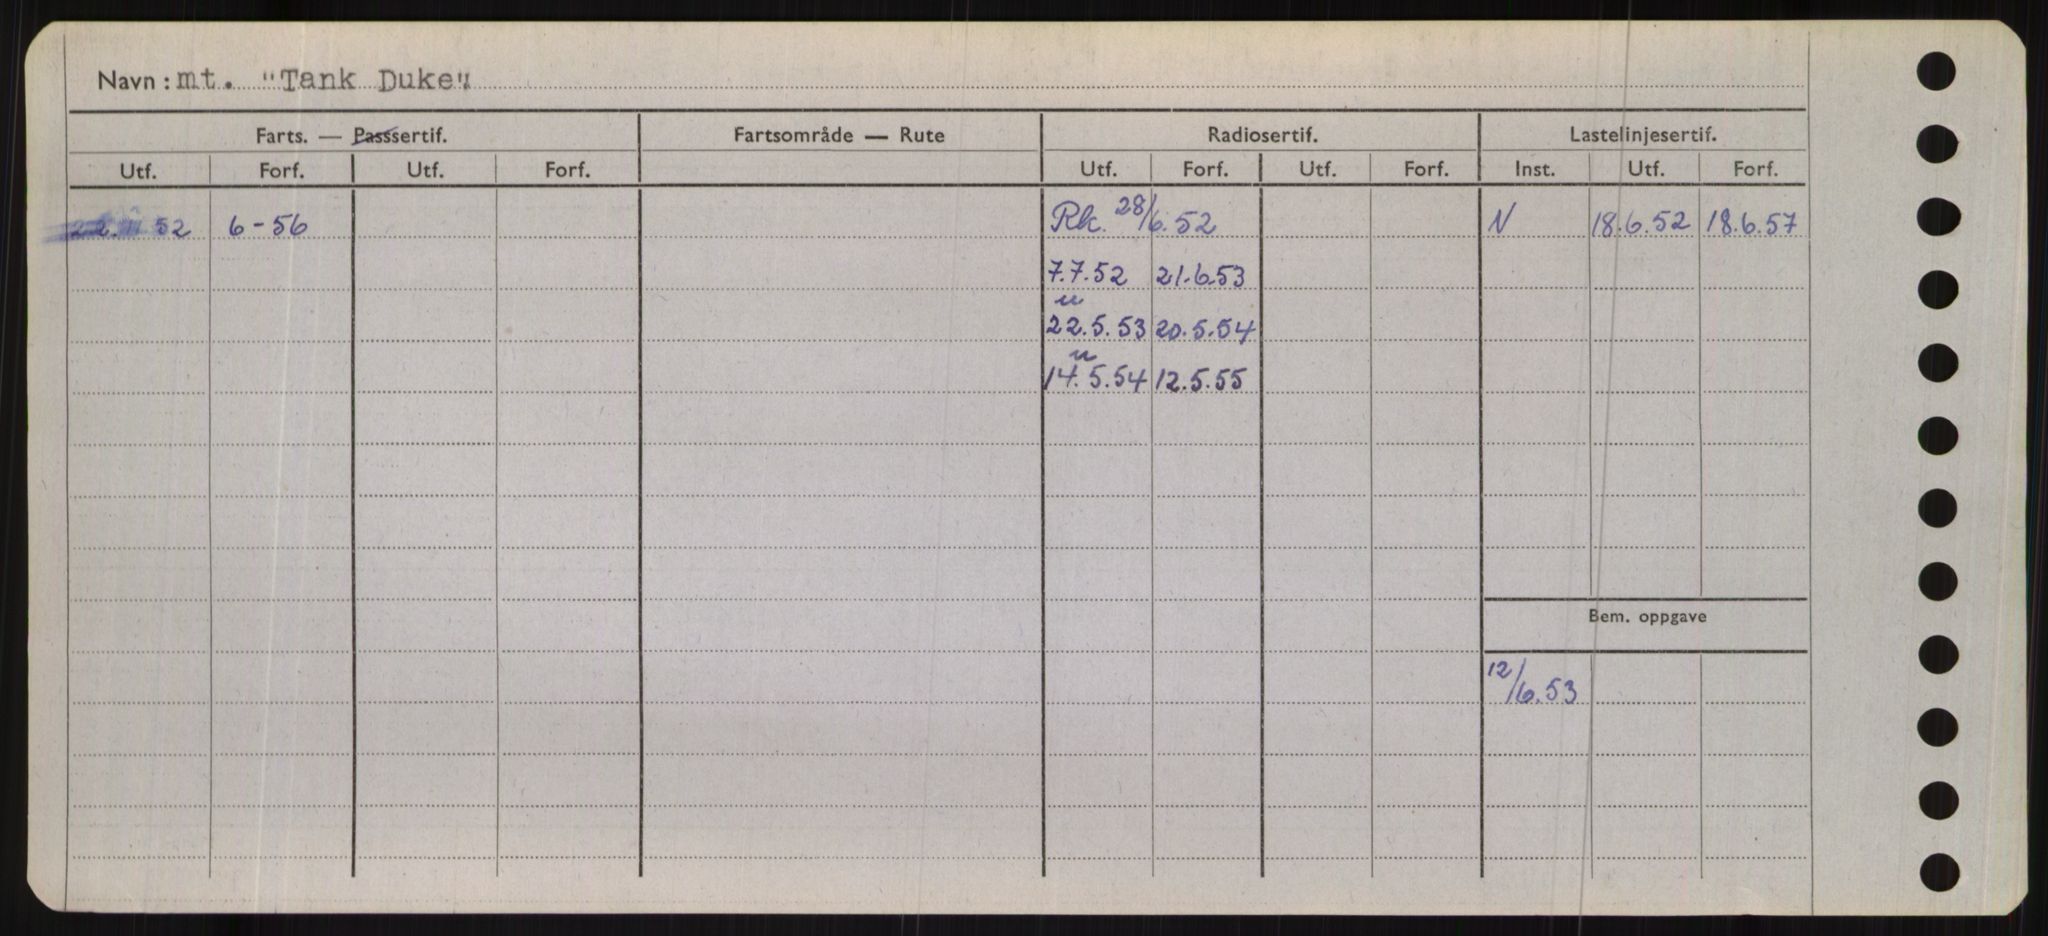 Navn: mt. "Tank Duke".
Farts. — Passsertif. Fartsområde — Rute Radiosertif. Lastelinjesertif.
Utf. Forf. Utf. Forf. Utf. Forf. Utf. Forf. Inst. Utf. Forf.
52 6-56 Rk. 28/6.52 N 18.6.52 18.6.57
7.7.52 21.6.53
u
22.5.53 20.5.54
u
14.5.54 12.5.55
Bem. oppgave
12/6.53